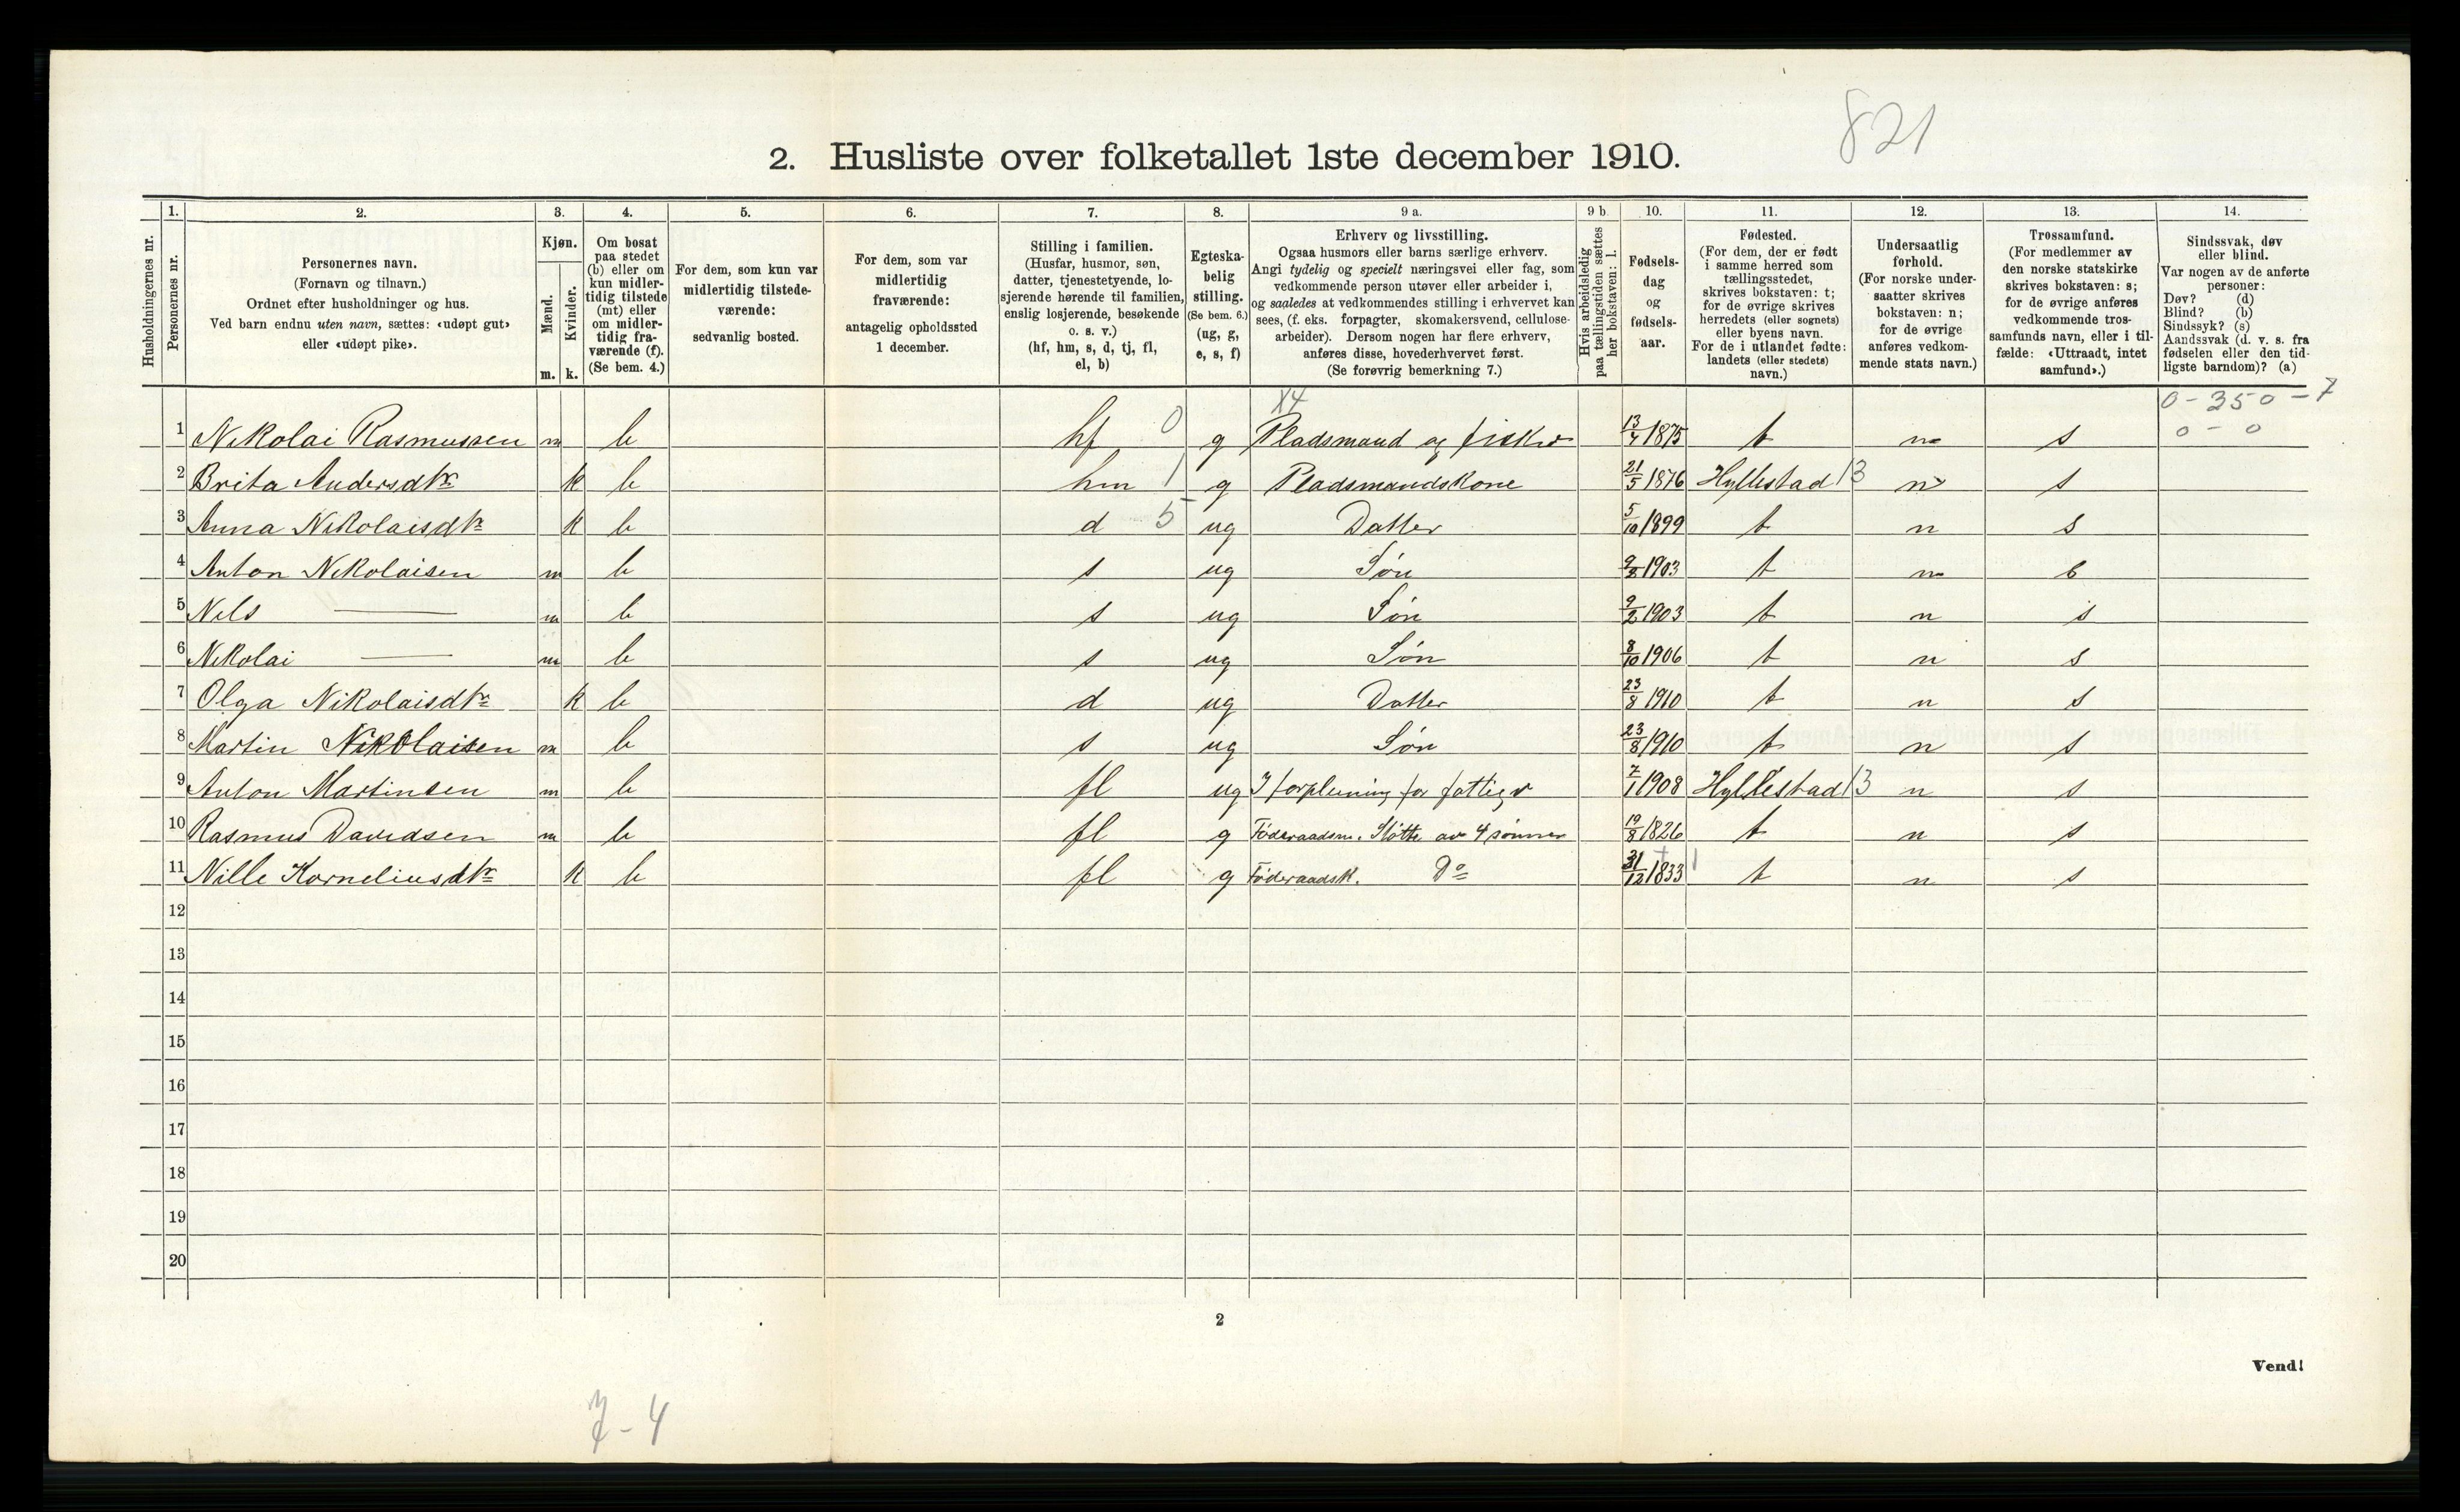 821
2. Husliste over folketallet 1ste december 1910.
Husholdningernes nr.
1. Personernes nr.
2. Personernes navn. (Fornavn og tilnavn.) Ordnet efter husholdninger og hus. Ved barn endnu uten navn, sættes: «udøpt gut» eller «udøpt pike».
3. Kjøn. Mænd. m. Kvinder. k.
4. Om bosat paa stedet (b) eller om kun midlertidig tilstede (mt) eller om midlertidig fraværende (f). (Se bem. 4.)
5. For dem, som kun var midlertidig tilstedeværende: sedvanlig bosted.
6. For dem, som var midlertidig fraværende: antagelig opholdssted 1 december.
7. Stilling i familien. (Husfar, husmor, søn, datter, tjenestetyende, losjerende hørende til familien, enslig losjerende, besøkende o. s. v.) (hf, hm, s, d, tj, fl, el, b)
8. Egteskabelig stilling. (Se bem. 6.) (ug, g, e, s, f)
9 a. Erhverv og livsstilling. Ogsaa husmors eller barns særlige erhverv. Angi tydelig og specielt næringsvei eller fag, som vedkommende person utøver eller arbeider i, og saaledes at vedkommendes stilling i erhvervet kan sees, (f. eks. forpagter, skomakersvend, cellulosearbeider). Dersom nogen har flere erhverv, anføres disse, hovederhvervet først. (Se forøvrig bemerkning 7.)
9 b. Hvis arbeidsledig paa tællingstiden sættes her bokstaven: l.
10. Fødselsdag og fødselsaar.
11. Fødested. (For dem, der er født i samme herred som tællingsstedet, skrives bokstaven: t; for de øvrige skrives herredets (eller sognets) eller byens navn. For de i utlandet fødte: landets (eller stedets) navn.)
12. Undersaatlig forhold. (For norske undersaatter skrives bokstaven: n; for de øvrige anføres vedkommende stats navn.)
13. Trossamfund. (For medlemmer av den norske statskirke skrives bokstaven: s; for de øvrige anføres vedkommende trossamfunds navn, eller i tilfælde: «Uttraadt, intet samfund».)
14. Sindssvak, døv eller blind. Var nogen av de anførte personer: Døv? (d) Blind? (b) Sindssyk? (s) Aandssvak (d. v. s. fra fødselen eller den tidligste barndom)? (a)
X4 0-350-7
1 Nikolai Rasmussen m b hf 0 g Pladsmand og fisker 13/4 1875 t n s 0-0
2 Brita Andersdtr k b hm 1 g Pladsmandskone 21/5 1876 Hyllestad 13 n s
3 Anna Nikolaisdtr k b d 5 ug Datter 5/10 1899 t n s
4 Anton Nikolaisen m b s ug Søn 9/2 1903 t n s
5 Nils — m b s ug Søn 9/2 1903 t n s
6 Nikolai — m b s ug Søn 8/10 1906 t n s
7 Olga Nikolaisdtr k b d ug Datter 23/8 1910 t n s
8 Martin Nikolaisen m b s ug Søn 23/8 1910 t n s
9 Anton Martinsen m b fl ug I forpleining for fattigv 7/1 1908 Hyllestad 13 n s
10 Rasmus Davidsen m b fl g Föderaadsm. Støtte av 4 sønner 19/8 1826 t n s
11 Nille Korneliusdtr k b fl g Föderaadsk. Do 31/12 1833 t n s
12
13
14
15
16
17
18
19
20
2
Vend!
7-4